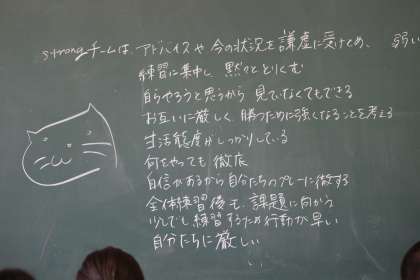 strongチームは、アドバイスや今の状況を謙虚に受けとめ、 弱い
練習に集中し、黙々ととりくむ
自らやろうと思うから 見ていなくてもできる
お互いに厳しく、勝つために強くなることを考える
生活態度がしっかりしている
何をやっても徹底
自信があるから自分たちのプレーに徹する
全体練習後も、課題に向かう
少しでも練習するため行動が早い
自分たちに厳しい